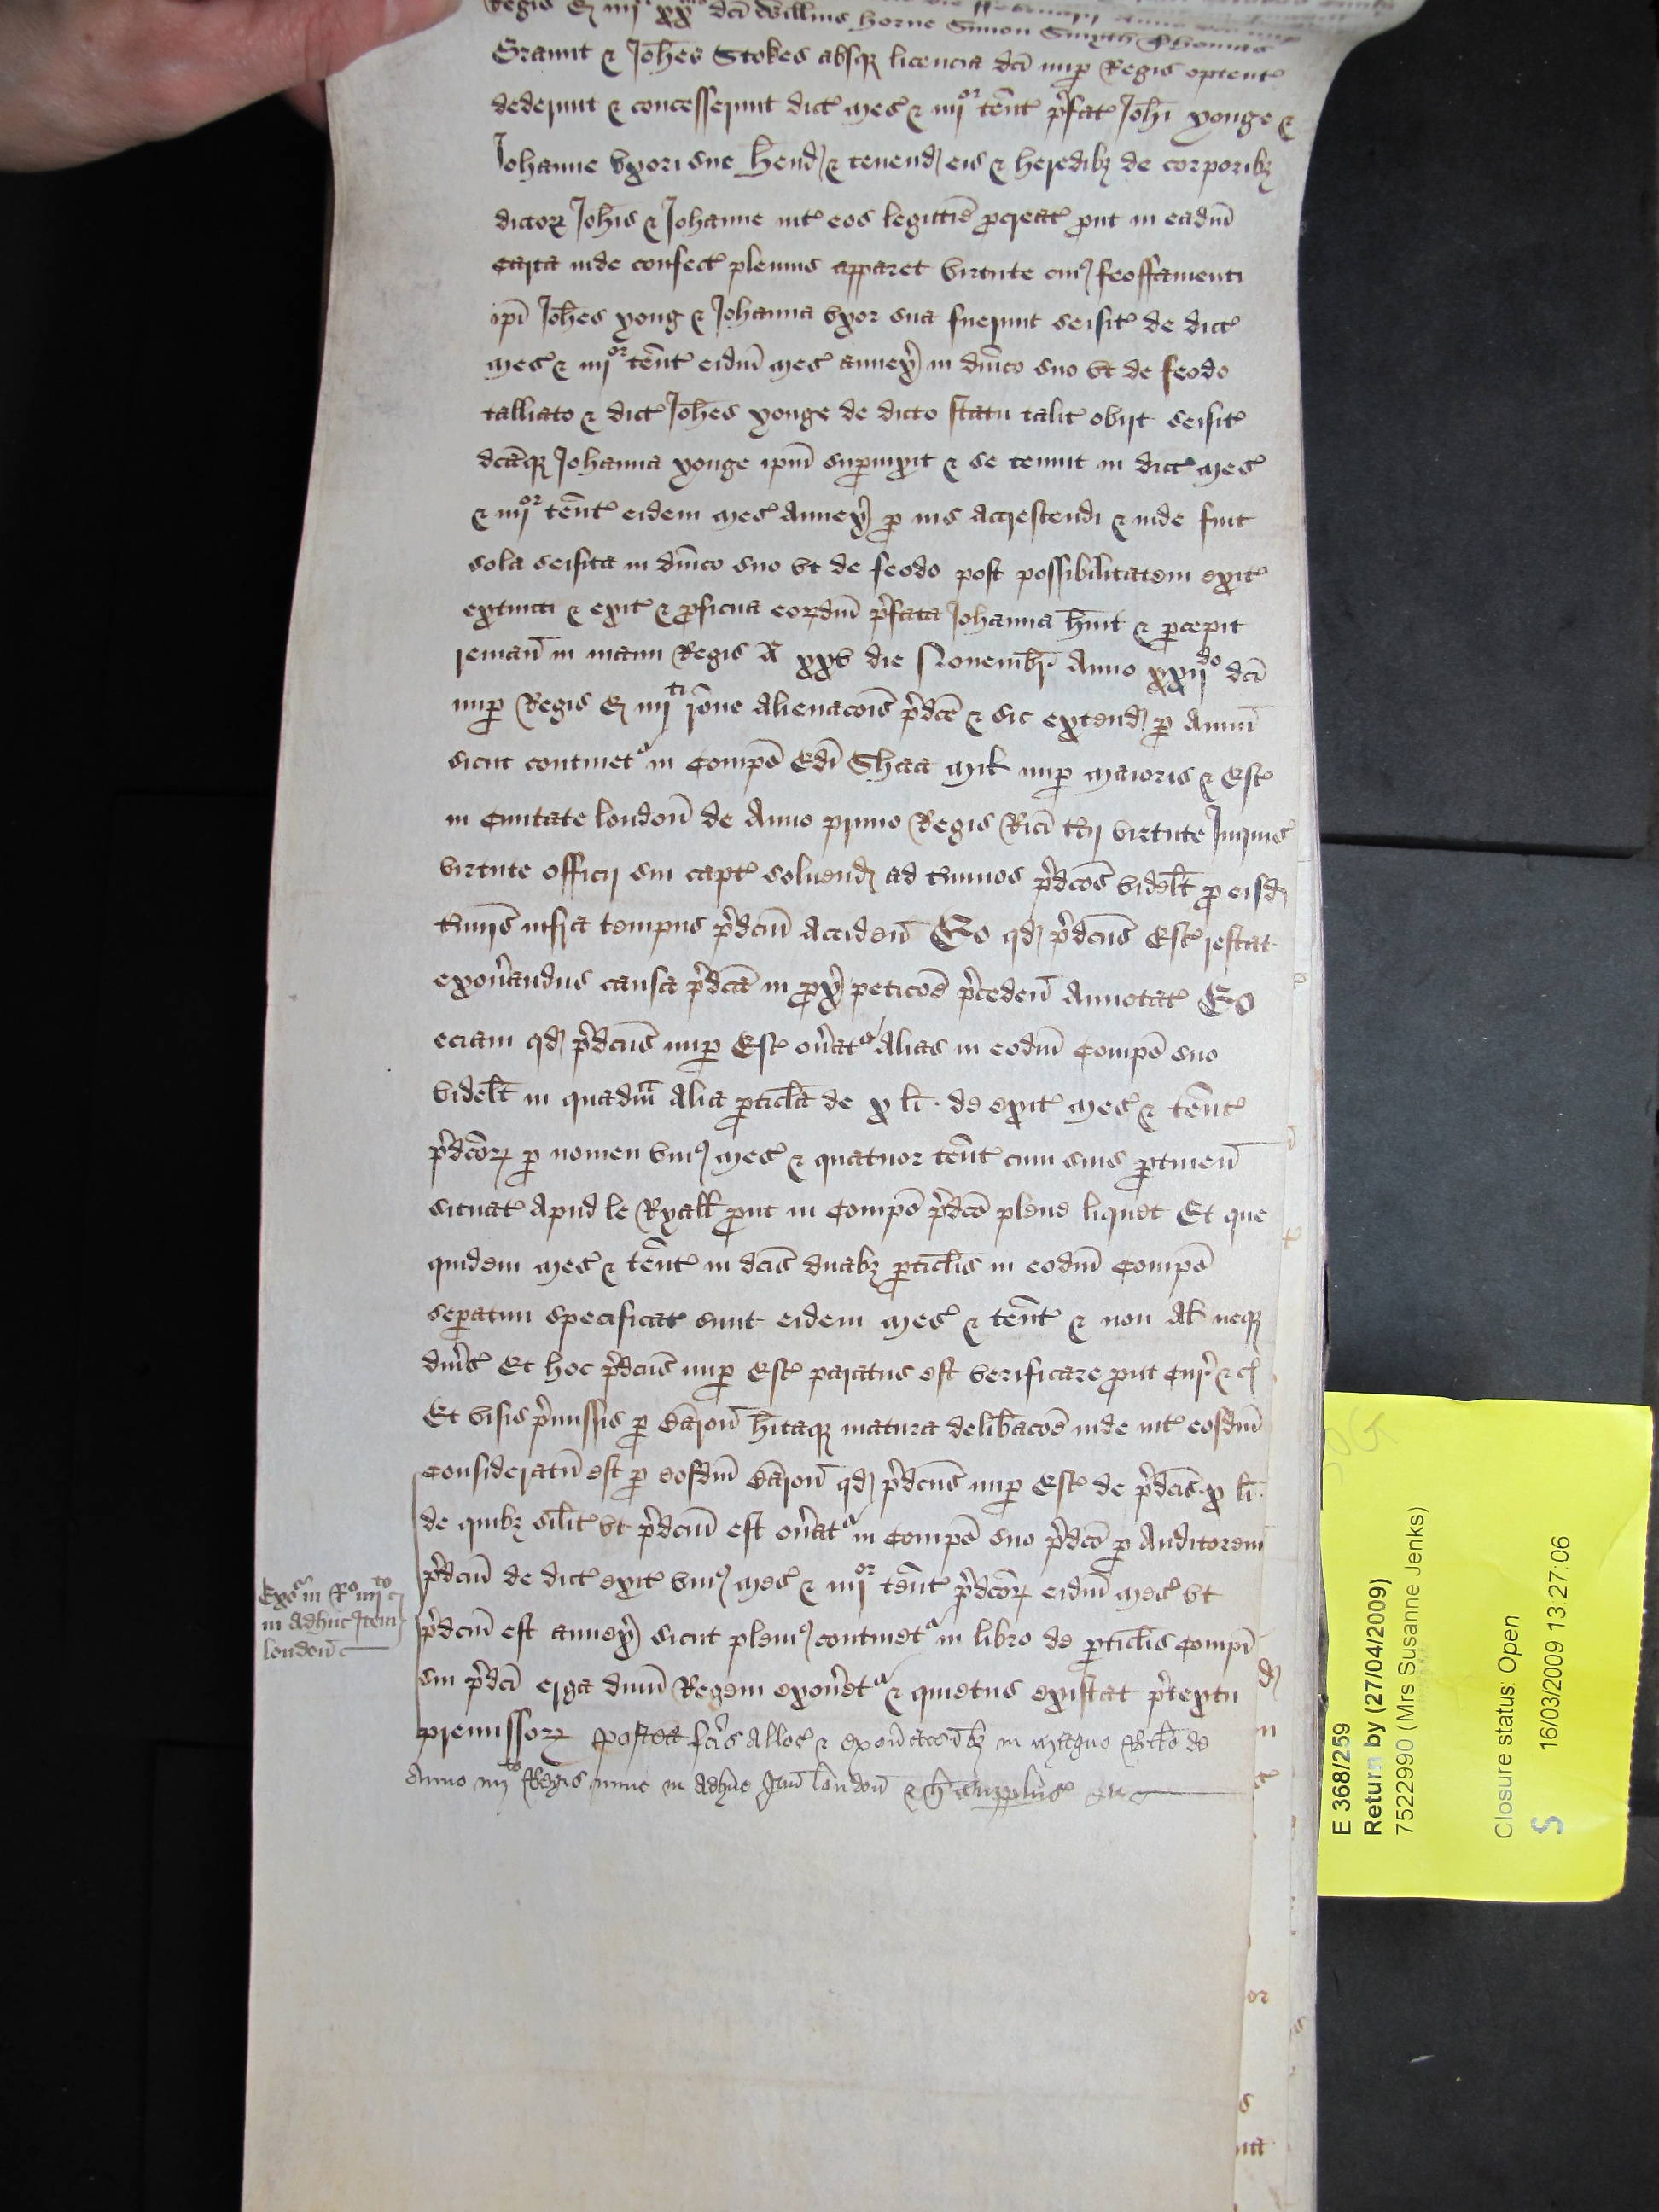 Regis E iiijti xxmo dc̄i Willm̄s Horne Simon Smyth Thomas
Graunt & Joh̄es Stokes absqꝫ licencia dc̄i nup̱ Regis optent
dederunt & concesserunt dict mes & iiijor ten̄t p̄fat Joh̄i yonge &
Johanne vxori sue Hend & tenend eis & heredibꝫ de corporibꝫ
dictoꝝ Joh̄is & Johanne int eos legittīe ꝓcreat ꝓut in eadm̄
carta inde confect plenius apparet virtute cuiꝰ feoffamenti
ip̄i Joh̄es yong & Johanna vxor sua fuerunt seisit de dict
mes & iiijor ten̄t eidm̄ mes annex in dn̄ico suo vt de feodo
talliato & dict Joh̄es yonge de dicto statu talit obijt seisit
dc̄aqꝫ Johanna yonge ip̄m sup̱uixit & se tenuit in dict mes
& iiijor ten̄t eidem mes annex p̱ ius accrescendi & inde fuit
sola seisita in dn̄ico suo vt de feodo post possibilitatem exit
extincti & exit & ꝓficua eoꝝdm̄ p̄fata Johanna h̄uit & p̱cepit
reman̄ in manu Regis A xxv die Nouembr Anno xxijdo dc̄i
nup̱ Regis E iiijti rōne alienacōis p̄dc̄e & sic extend p̱ annū
sicut continet in compō Edī Shaa mil nup̱ maioris & Esc
in Ciuitate london̄ de Anno primo Regis Ric̄i t̄cij virtute Inquis
virtute officij sui capt soluend ad t̄minos p̄dc̄os videlt ꝓ eisd
t̄mīs infra tempus p̄dc̄m acciden̄ Eo qd p̄dc̄us Esc restat
exon̄andus causa p̄dc̄a in ꝓx peticōe p̄ceden̄ annotat Eo
eciam qd p̄dc̄us nup̱ Esc on̄at alias in eodm̄ compō suo
videlt in quadm̄ alia p̱ticl̄a de x li. de exit mes & ten̄t
p̄dc̄oꝝ p̱ nomen vniꝰ mes & quatuor ten̄t cum suis p̱tinen̄
situat apud le Ryall ꝓut in compō p̄dc̄o plene liquet Et que
quidem mes & ten̄t in dc̄is duabꝫ p̱ticl̄is in eodm̄ compō
sep̱atim specificat sunt eidem mes & ten̄t & non al neqꝫ
diūs Et hoc p̄dc̄us nup̱ Esc paratus est verificare ꝓut Cur &c
Et visis p̄missis p̱ Baron̄ h̄itaqꝫ matura delib̄acōe inde int eosdm̄
Consideratū est p̱ eosdm̄ Baron̄ qd p̄dc̄us nup̱ Esc de p̄dc̄is x li.
de quibꝫ silit vt p̄dc̄m est on̄at in compō suo p̄dc̄o p̱ Auditorem
p̄dc̄m de dict exit vniꝰ mes & iiijor ten̄t p̄dc̄oꝝ eidm̄ mes vt
p̄dc̄m est annex sicut pleniꝰ continet in libro de p̱ticl̄is compī
sui p̄dc̄i erga dn̄m Regem exon̄et & quietus existat p̄textu
premissoꝝ Postea fc̄is alloc & exon̄acōibꝫ in magno Rotlō de
Anno iiijto Regis nunc in adhuc Itm̄ london̄ & h̄t surplus &c
Exon in Ro iiijto
in adhuc Item
london̄
E 368/259
Return by (27/04/2009)
7522990 (Mrs Susanne Jenks)
Closure status: Open
16/03/2009 13:27:06
S